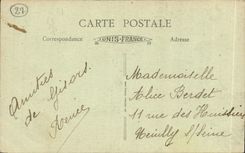 27
CARTE POSTALE
Correspondance
UNIS-FRANCE
Adresse
Amitiés
de Gisors.
Renée
Mademoiselle
Alice Berdet
11 rue des Huissiers
Neuilly s/Seine